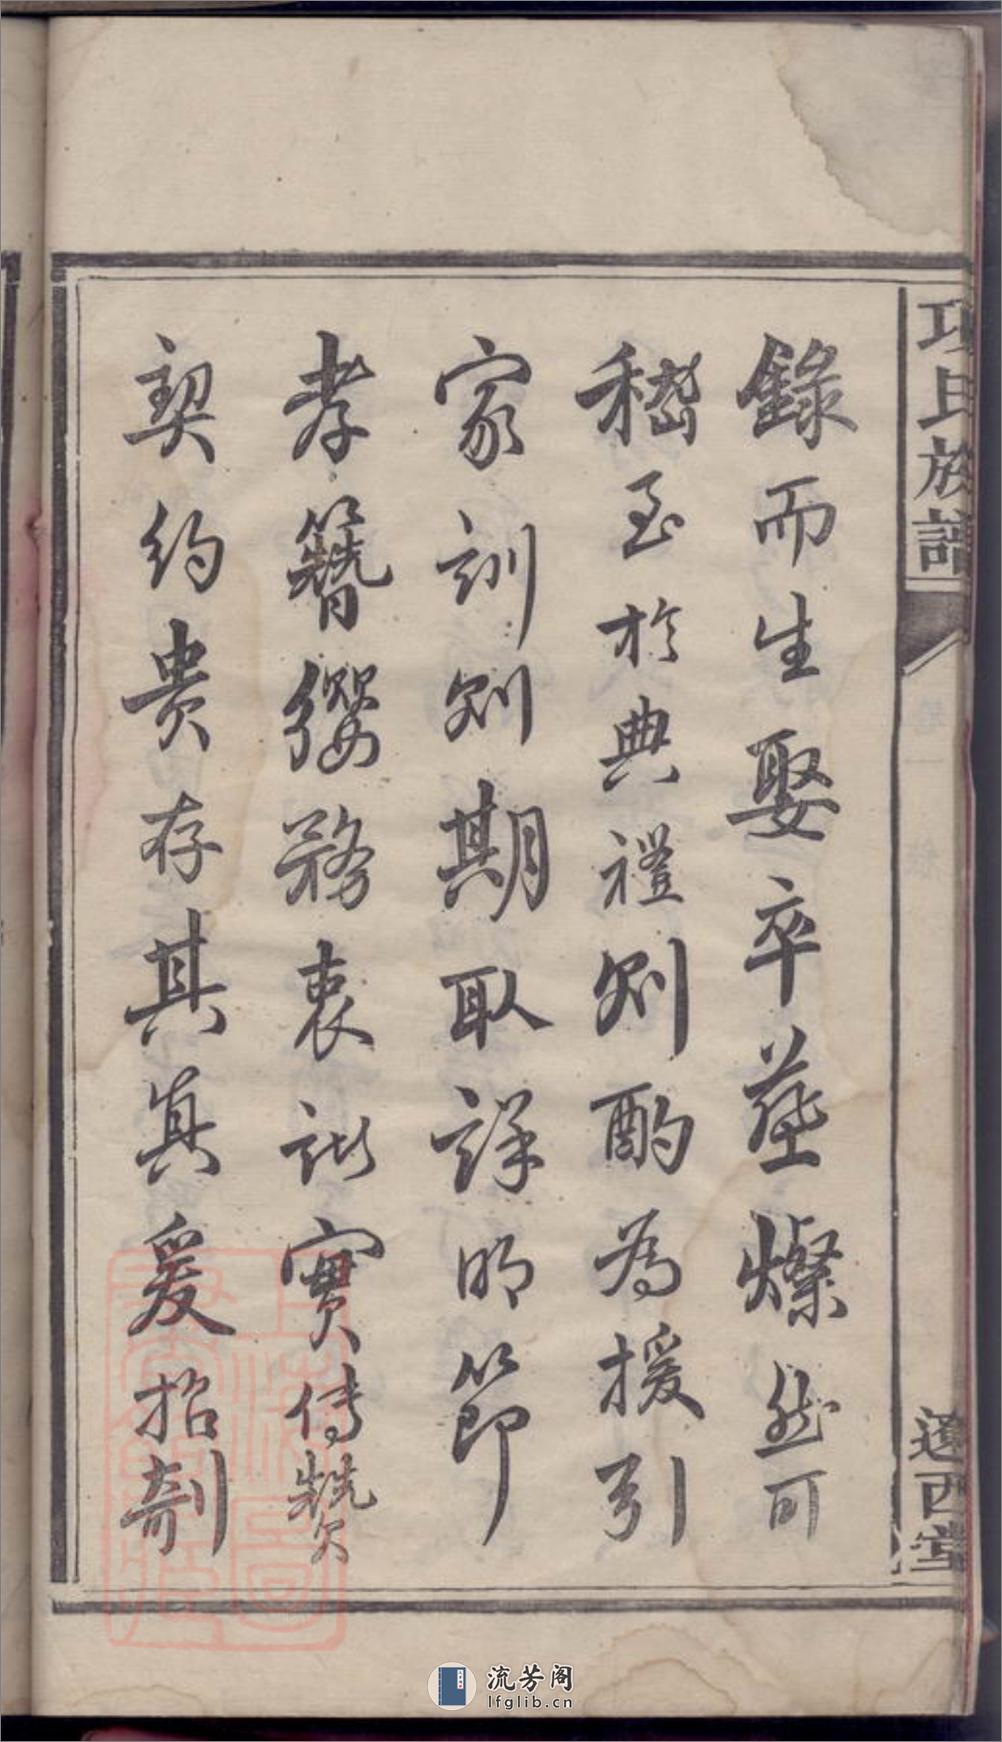 項氏族譜
遼西堂
錄而生娶卒塟燦然可
嵇至於典禮則酌為援引
家訓則期取詳明節
孝簪纓務衷諸實傳贊
契約貴存其真爰招剞
流芳阁
lfglib.cn